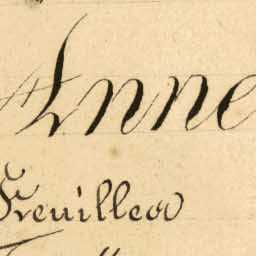 Anne
Freuillea